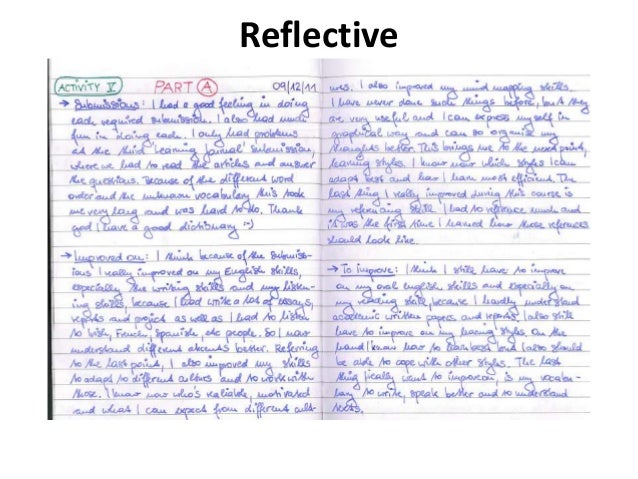 Reflective
ACTIVITY V PART A 09/12/11
→ Submissions: I had a good feeling in doing
each required submission. I also had much
fun in doing each. I only had problems
at the third 'Learning Journal' submission,
where we had to read the articles and answer
the questions. Because of the different word
order and the unknown vocabulary this took
me very long and was hard to do. Thank
god I have a good dictionary :-)
→ Improved on: I think because of the submiss-
ions I really improved on my English skills,
especially the writing skills and my listen-
ing skills, because I had write a lot of essays,
reports and project as well as I had to listen
to Irish, French, Spanish, etc people. So I now
understand different accents better. Referring
to the last point, I also improved my skills
to adapt to different cultures and to work with
those. I know now who's reliable, motivated
and what I can expect from different cult-
ures. I also improved my mind mapping skills.
I have never done such things before, but they
are very useful and I can express myself in
graphical way and can so organize my
thoughts better. This brings me to the next point,
learning styles. I know now which styles I can
adapt best and how I learn most efficient. The
last thing I really improved during this course is
my referencing skills. I had to reference much and
it was the first time I learned how those references
should look like.
→ To improve: I think I still have to improve
on my oral english skills and especially on
my reading skills, because I hardly understand
academic written papers and reports. I also still
have to improve on my learning styles. On the
hand I know how to learn best but I also should
be able to cope with other styles. The last
thing I really want to improve on, is my vocabu-
lary to write, speak better and to understand
texts.